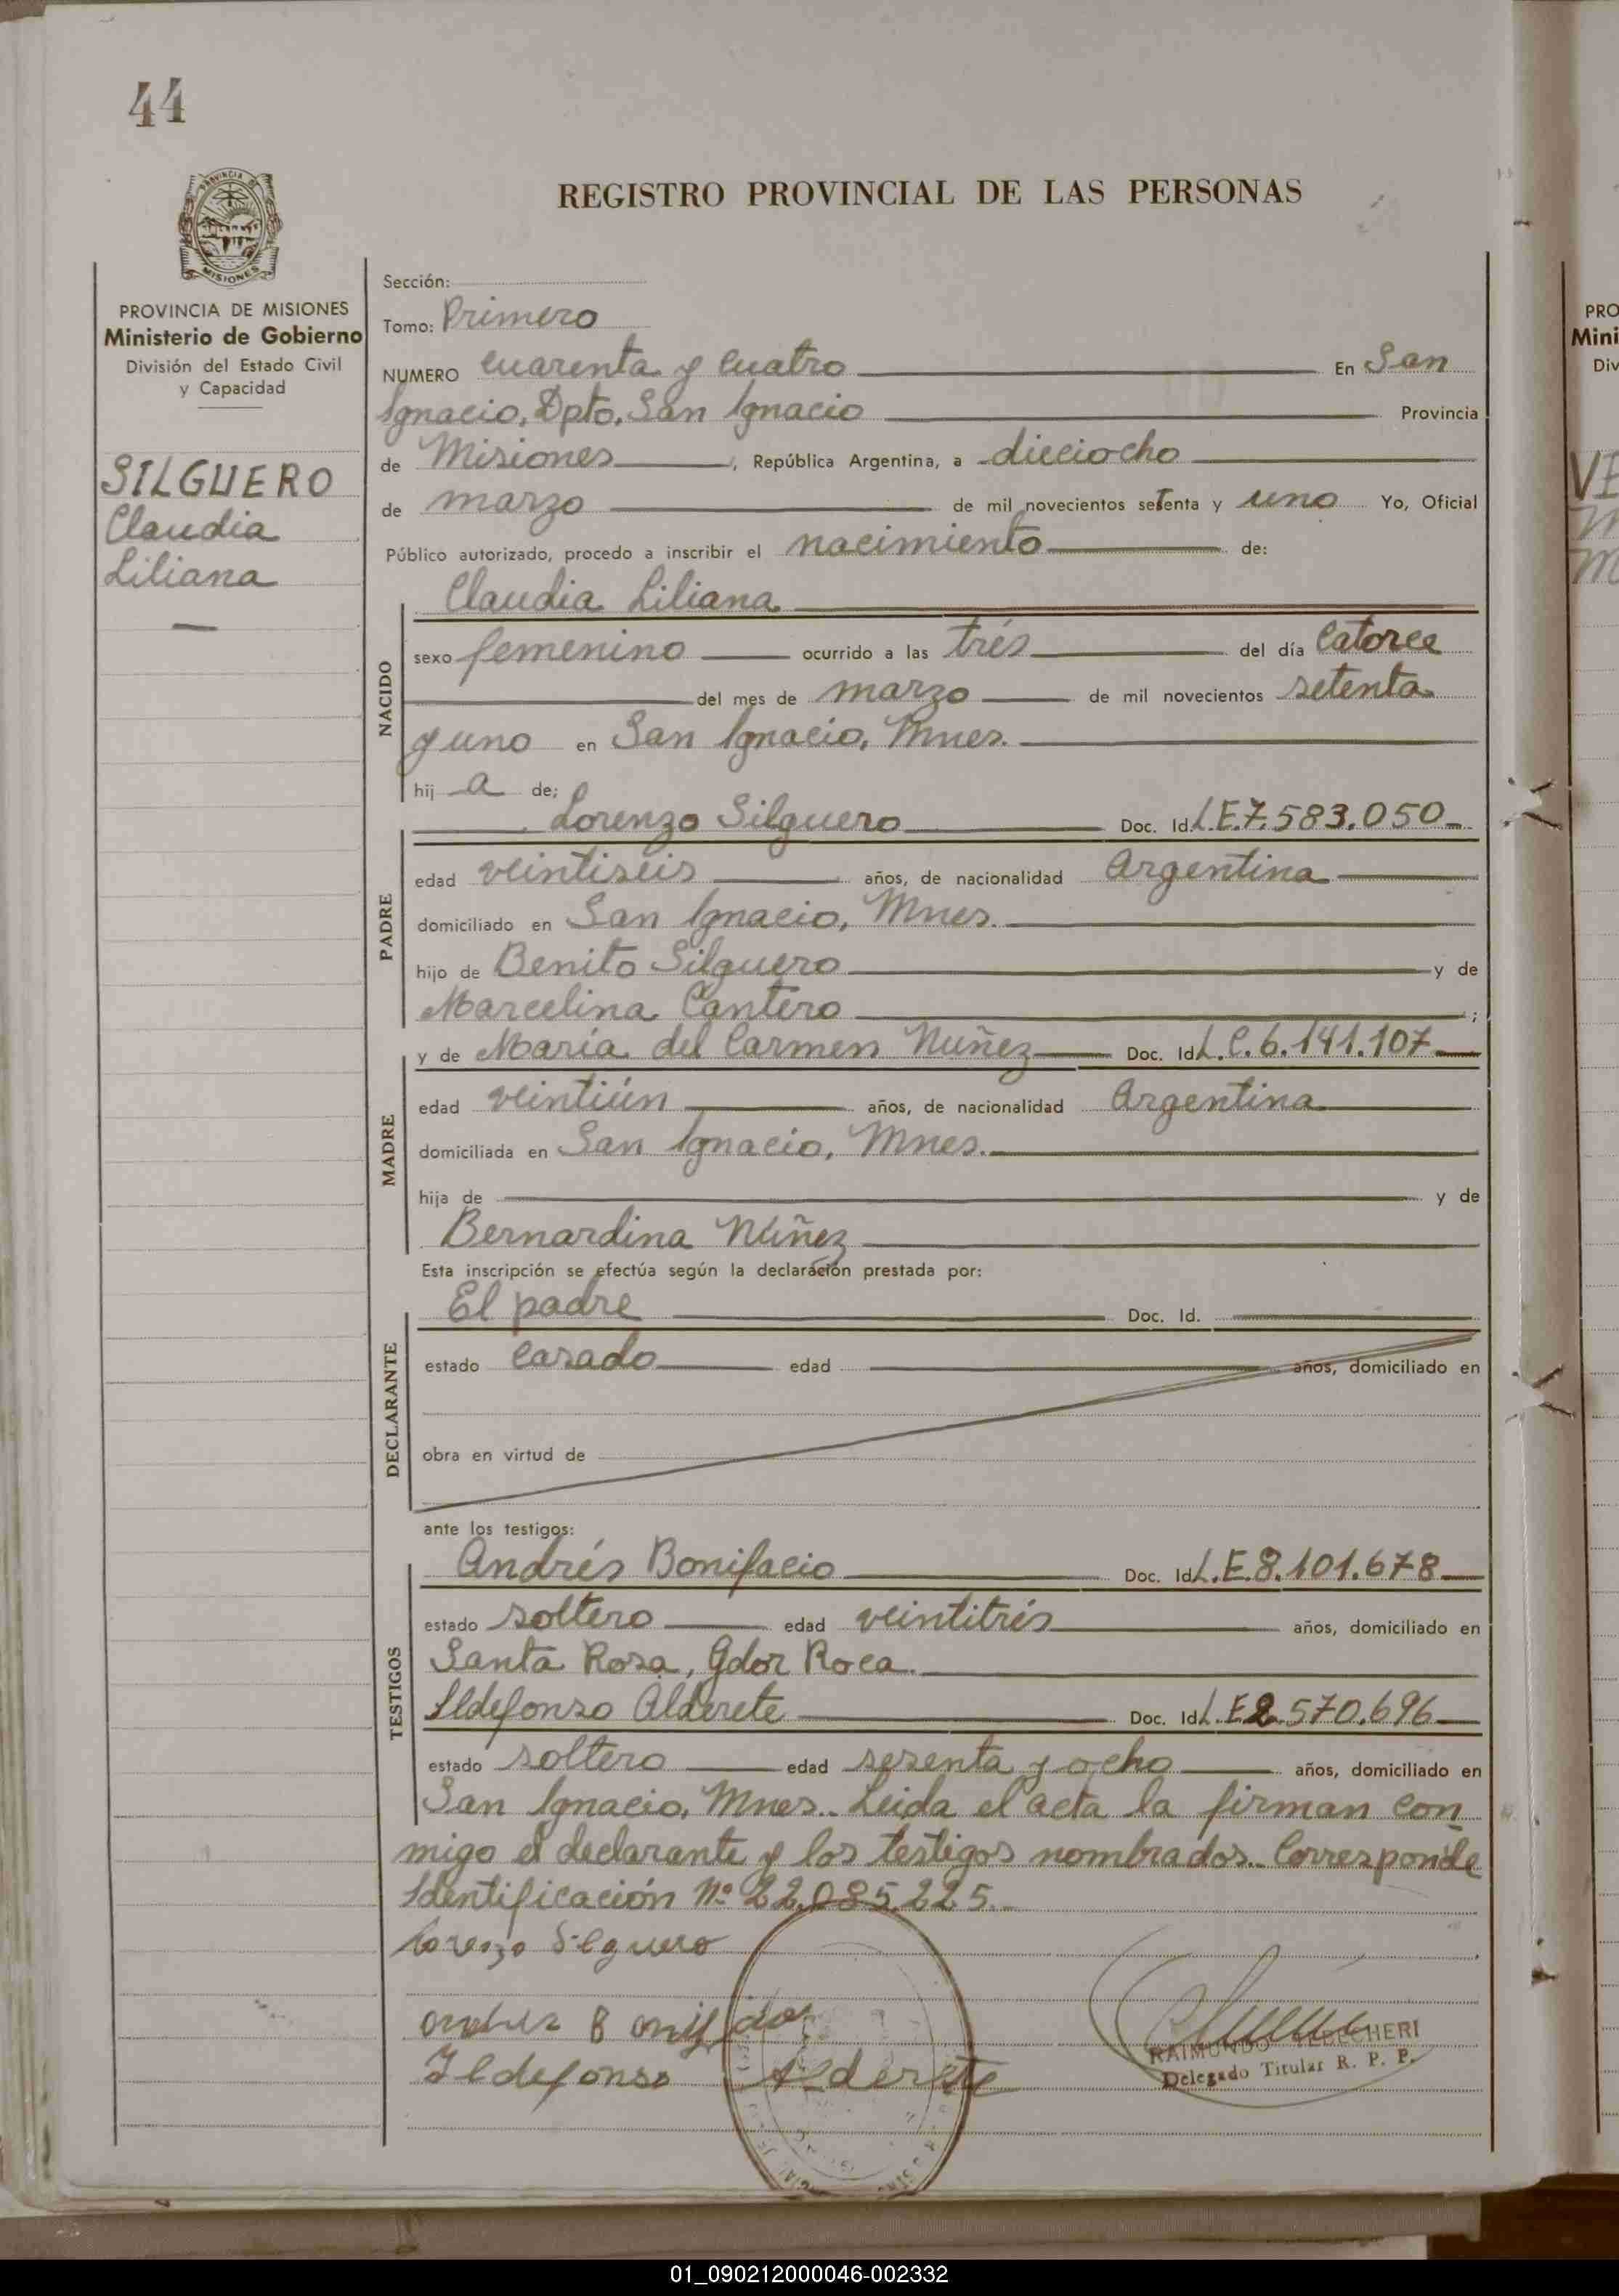 44
REGISTRO PROVINCIAL DE LAS PERSONAS
MISIONES
PROVINCIA DE MISIONES
Ministerio de Gobierno
División del Estado Civil
y Capacidad
SILGUERO
Claudia
Liliana
Sección:
Tomo: Primero
NUMERO cuarenta y cuatro En San
Ignacio, Dpto. San Ignacio Provincia
de Misiones, República Argentina, a dieciocho
de marzo de mil novecientos setenta y uno Yo, Oficial
Público autorizado, procedo a inscribir el nacimiento de:
NACIDO
Claudia Liliana
sexo femenino ocurrido a las trés del día catorce
del mes de marzo de mil novecientos setenta
y uno en San Ignacio, Mnes.
hij a de;
PADRE
Lorenzo Silguero Doc. Id. L.E.7.583.050
edad veintiseis años, de nacionalidad Argentina
domiciliado en San Ignacio, Mnes.
hijo de Benito Silguero y de
Marcelina Cantero ;
MADRE
y de María del Carmen Nuñez Doc. Id. L.C.6.141.107
edad veintiún años, de nacionalidad Argentina
domiciliada en San Ignacio, Mnes.
hija de y de
Bernardina Núñez
Esta inscripción se efectúa según la declaración prestada por:
DECLARANTE
El padre Doc. Id.
estado casado edad años, domiciliado en
obra en virtud de
ante los testigos:
TESTIGOS
Andrés Bonifacio Doc. Id. L.E.8.101.678
estado soltero edad veintitrés años, domiciliado en
Santa Rosa, Gdor Roca.
Ildefonso Alderete Doc. Id. L.E.2.570.696
estado soltero edad sesenta y ocho años, domiciliado en
San Ignacio, Mnes.. Leida el acta la firman con
migo el declarante y los testigos nombrados. Corresponde
Identificación Nº 22.085.225.
Lorenzo Silguero
Ildefonso Alderete
RAIMUNDO TEBECHERI
Delegado Titular R. P. P.
PRO
Mini
Div
01_090212000046-002332